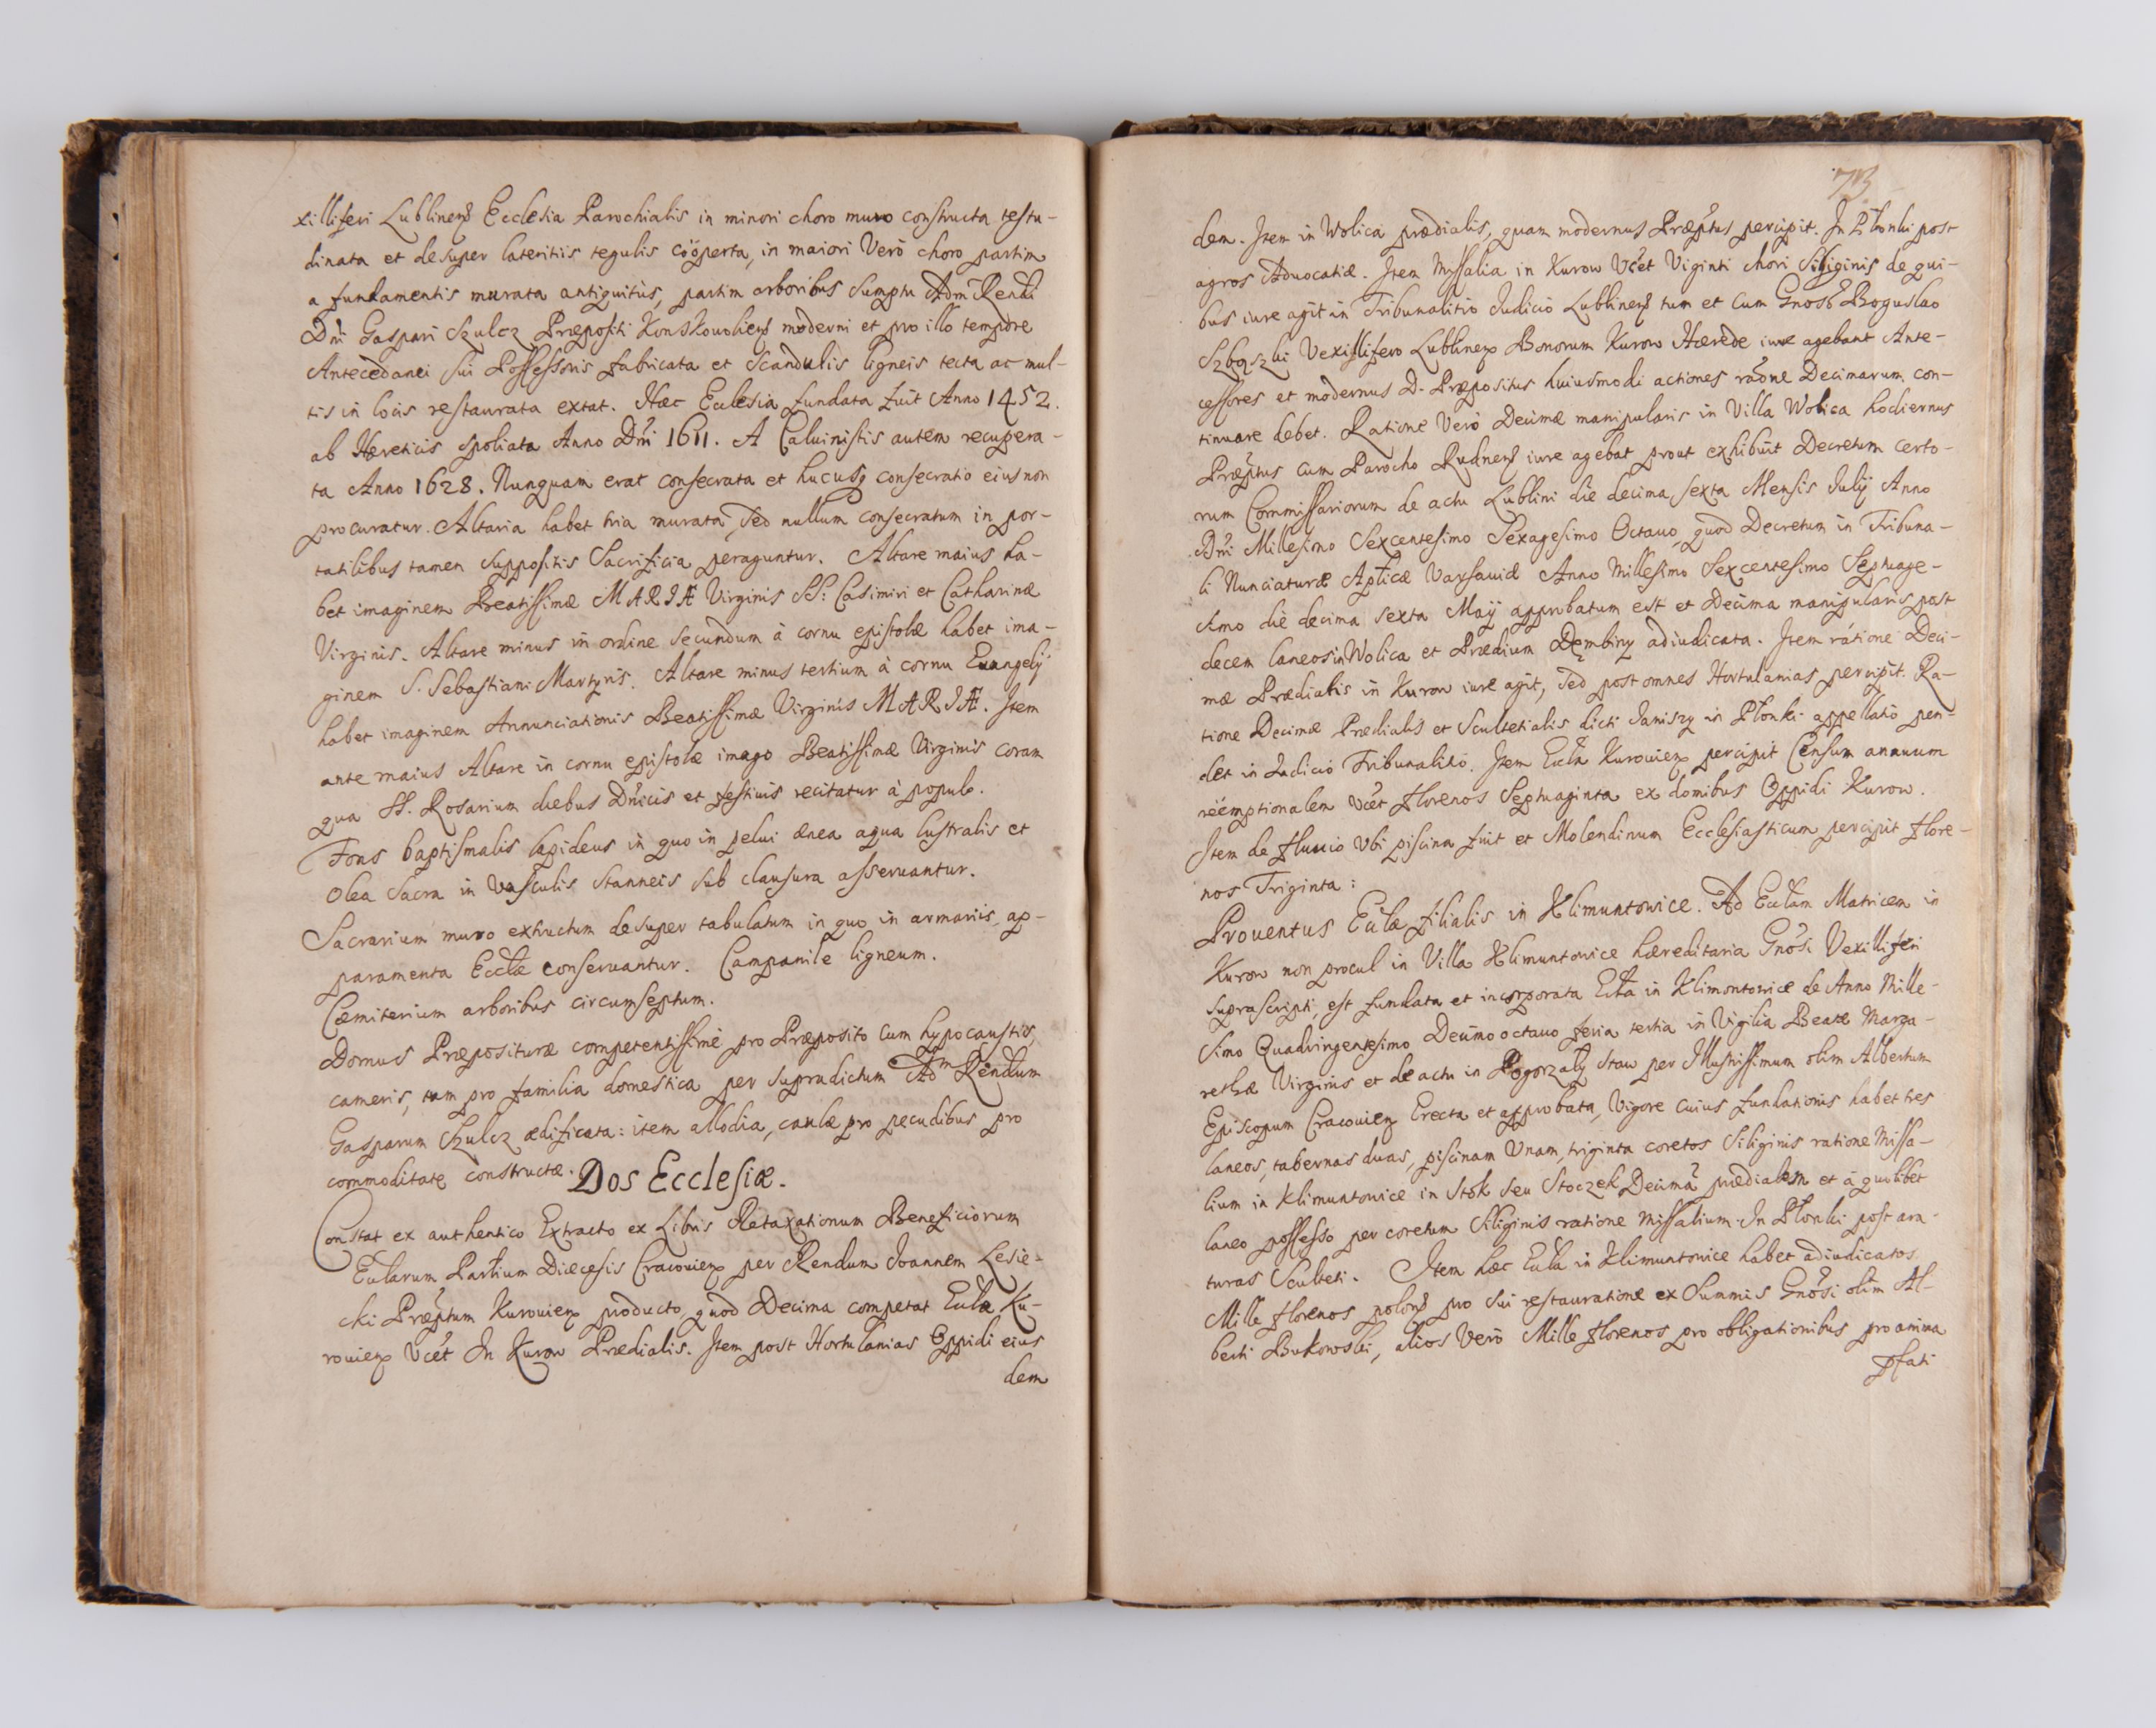 xilliferi Lublinens Ecclesia Parochialis in minori choro muro constructa testu-
dinata et desuper lateritiis tegulis cööperta, in maiori Verò choro partim
a fundamentis murata antiquitùs, partim arboribus Sumptu Adm Rendi
Dni Gaspari Szulcz Præpositi Konskovoliens moderni et pro illo tempore
Antecedanei sui Possessoris fabricata et Scandulis ligneis tecta ac mul-
tis in locis restaurata extat. Hæc Ecclesia fundata fuit Anno 1452.
ab Hæreticis spoliata Anno Dni 1611. A Caluinistis autem recupera-
ta Anno 1628. Nunquam erat consecrata et hucusq consecratio eius non
procuratur. Altaria habet tria murata, sed nullum consecratum in por-
tatilibus tamen suppositis Sacrificia peraguntur. Altare maius ha-
bet imaginem Beatissimæ MARIÆ Virginis SS: Casimiri et Catharinæ
Virginis. Altare minus in ordine secundum à cornu epistolæ habet ima-
ginem S. Sebastiani Martyris. Altare minus tertium à cornu Euangelij
habet imaginem Annunciationis Beatissimæ Virginis MARIÆ. Item
ante maius Altare in cornu epistolæ imago Beatissimæ Virginis coram
qua SS. Rosarium diebus Dnicis et festiuis recitatur à populo.
Fons baptismalis lapideus in quo in pelui ænea aqua lustralis et
Olea Sacra in Vasculis stanneis sub clausura asseruantur.
Sacrarium muro extructum desuper tabulatum in quo in armariis, ap-
paramenta Ecclæ conseruantur. Campanile ligneum.
Cæmiterium arboribus circumseptum.
Domus Præposituræ competentissimè pro Præposito cum hypocaustis,
cameris, tam pro familia domestica per supradictum Adm Rendum
Gasparum Szulcz ædificata: item allodia, caulæ pro pecudibus pro
commoditate constructæ. Dos Ecclesiæ.
Constat ex authentico Extracto ex Libris Retaxationum Beneficiorum
Eccłarum Partium Diæcesis Cracouien per Rendum Joannem Lesie-
cki Præptum Kurouien producto, quod Decima competat Eccłæ Ku-
rouien Vcet In Kurow Prædialis. Item post Hortulanias Oppidi eius
dem
73
dem. Item in Wolica prædialis, quam modernus Præptus percipit. In Płonki post
agros Aduocatiæ. Item Missalia in Kurow Vcet Viginti chori Siliginis de qui-
bus iure agit in Tribunalitio Judicio Lublinens tum et cum Gnoso Boguslao
Vexillifero Lublinen Bonorum Kurow Hærede iure agebant Ante-
cessores et modernus D. Præpositus huiusmodi actiones raone Decimarum con-
tinuare debet. Ratione Verò Decimæ manipularis in Villa Wolica hodiernus
Præptus cum Parocho Rudnens iure agebat prout exhibuit Decretum certo-
rum Commissariorum de actu Lublini die decima sexta Mensis Julij Anno
Dni Millesimo Sexcentesimo Sexagesimo Octauo, quod Decretum in Tribuna-
li Nunciaturæ Apticæ Varsauiæ Anno Millesimo Sexcentesimo Septuage-
simo die decima sexta Maij approbatum est et Decima manipularis post
decem laneos in Wolica et Prædium Dembiny adiudicata. Item ratione Deci-
mæ Prædialis in Kurow iure agit, sed post omnes Hortulanias percipit. Ra-
tione Decimæ Prædialis et Scultetialis dicti Janiszy in Płonki appellatio pen-
det in Judicio Tribunalitio. Item Eccła Kurouien percipit Censum annuum
reëmptionalem Vcet florenos Septuaginta ex domibus Oppidi Kurow.
Item de fluuio Vbi piscina fuit et Molendinum Ecclesiasticum percipit flore-
nos Triginta:
Prouentus Eccłæ filialis in Klimuntowice. Ad Eccłam Matricem in
Kurow non procul in Villa Klimuntowice hæreditaria Gnosi Vexilliferi
suprascripti, est fundata et incorporata Eccła in Klimontowice de Anno Mille-
simo Quadringentesimo Decimo octauo feria tertia in Vigilia Beatæ Marga-
rethæ Virginis et de actu in Pogorzały Staw per Illustrissimum olim Albertum
Episcopum Cracouien Erecta et approbata, Vigore cuius fundationis habet tres
laneos, tabernas duas, piscinam Vnam, triginta coretos Siliginis ratione Missa-
lium in Klimuntowice in Stok seu Stoczek Decimã prædialem et à quolibet
laneo possesso per coretum Siliginis ratione Missalium. In Płonki post ara-
turas Sculteti. Item hæc Eccła in Klimuntowice habet adiudicatos
Mille florenos polons pro sui restauratione ex Summis Gnosi olim Al-
berti Bukowski, alios Verò Mille florenos pro obligationibus pro anima
pfati